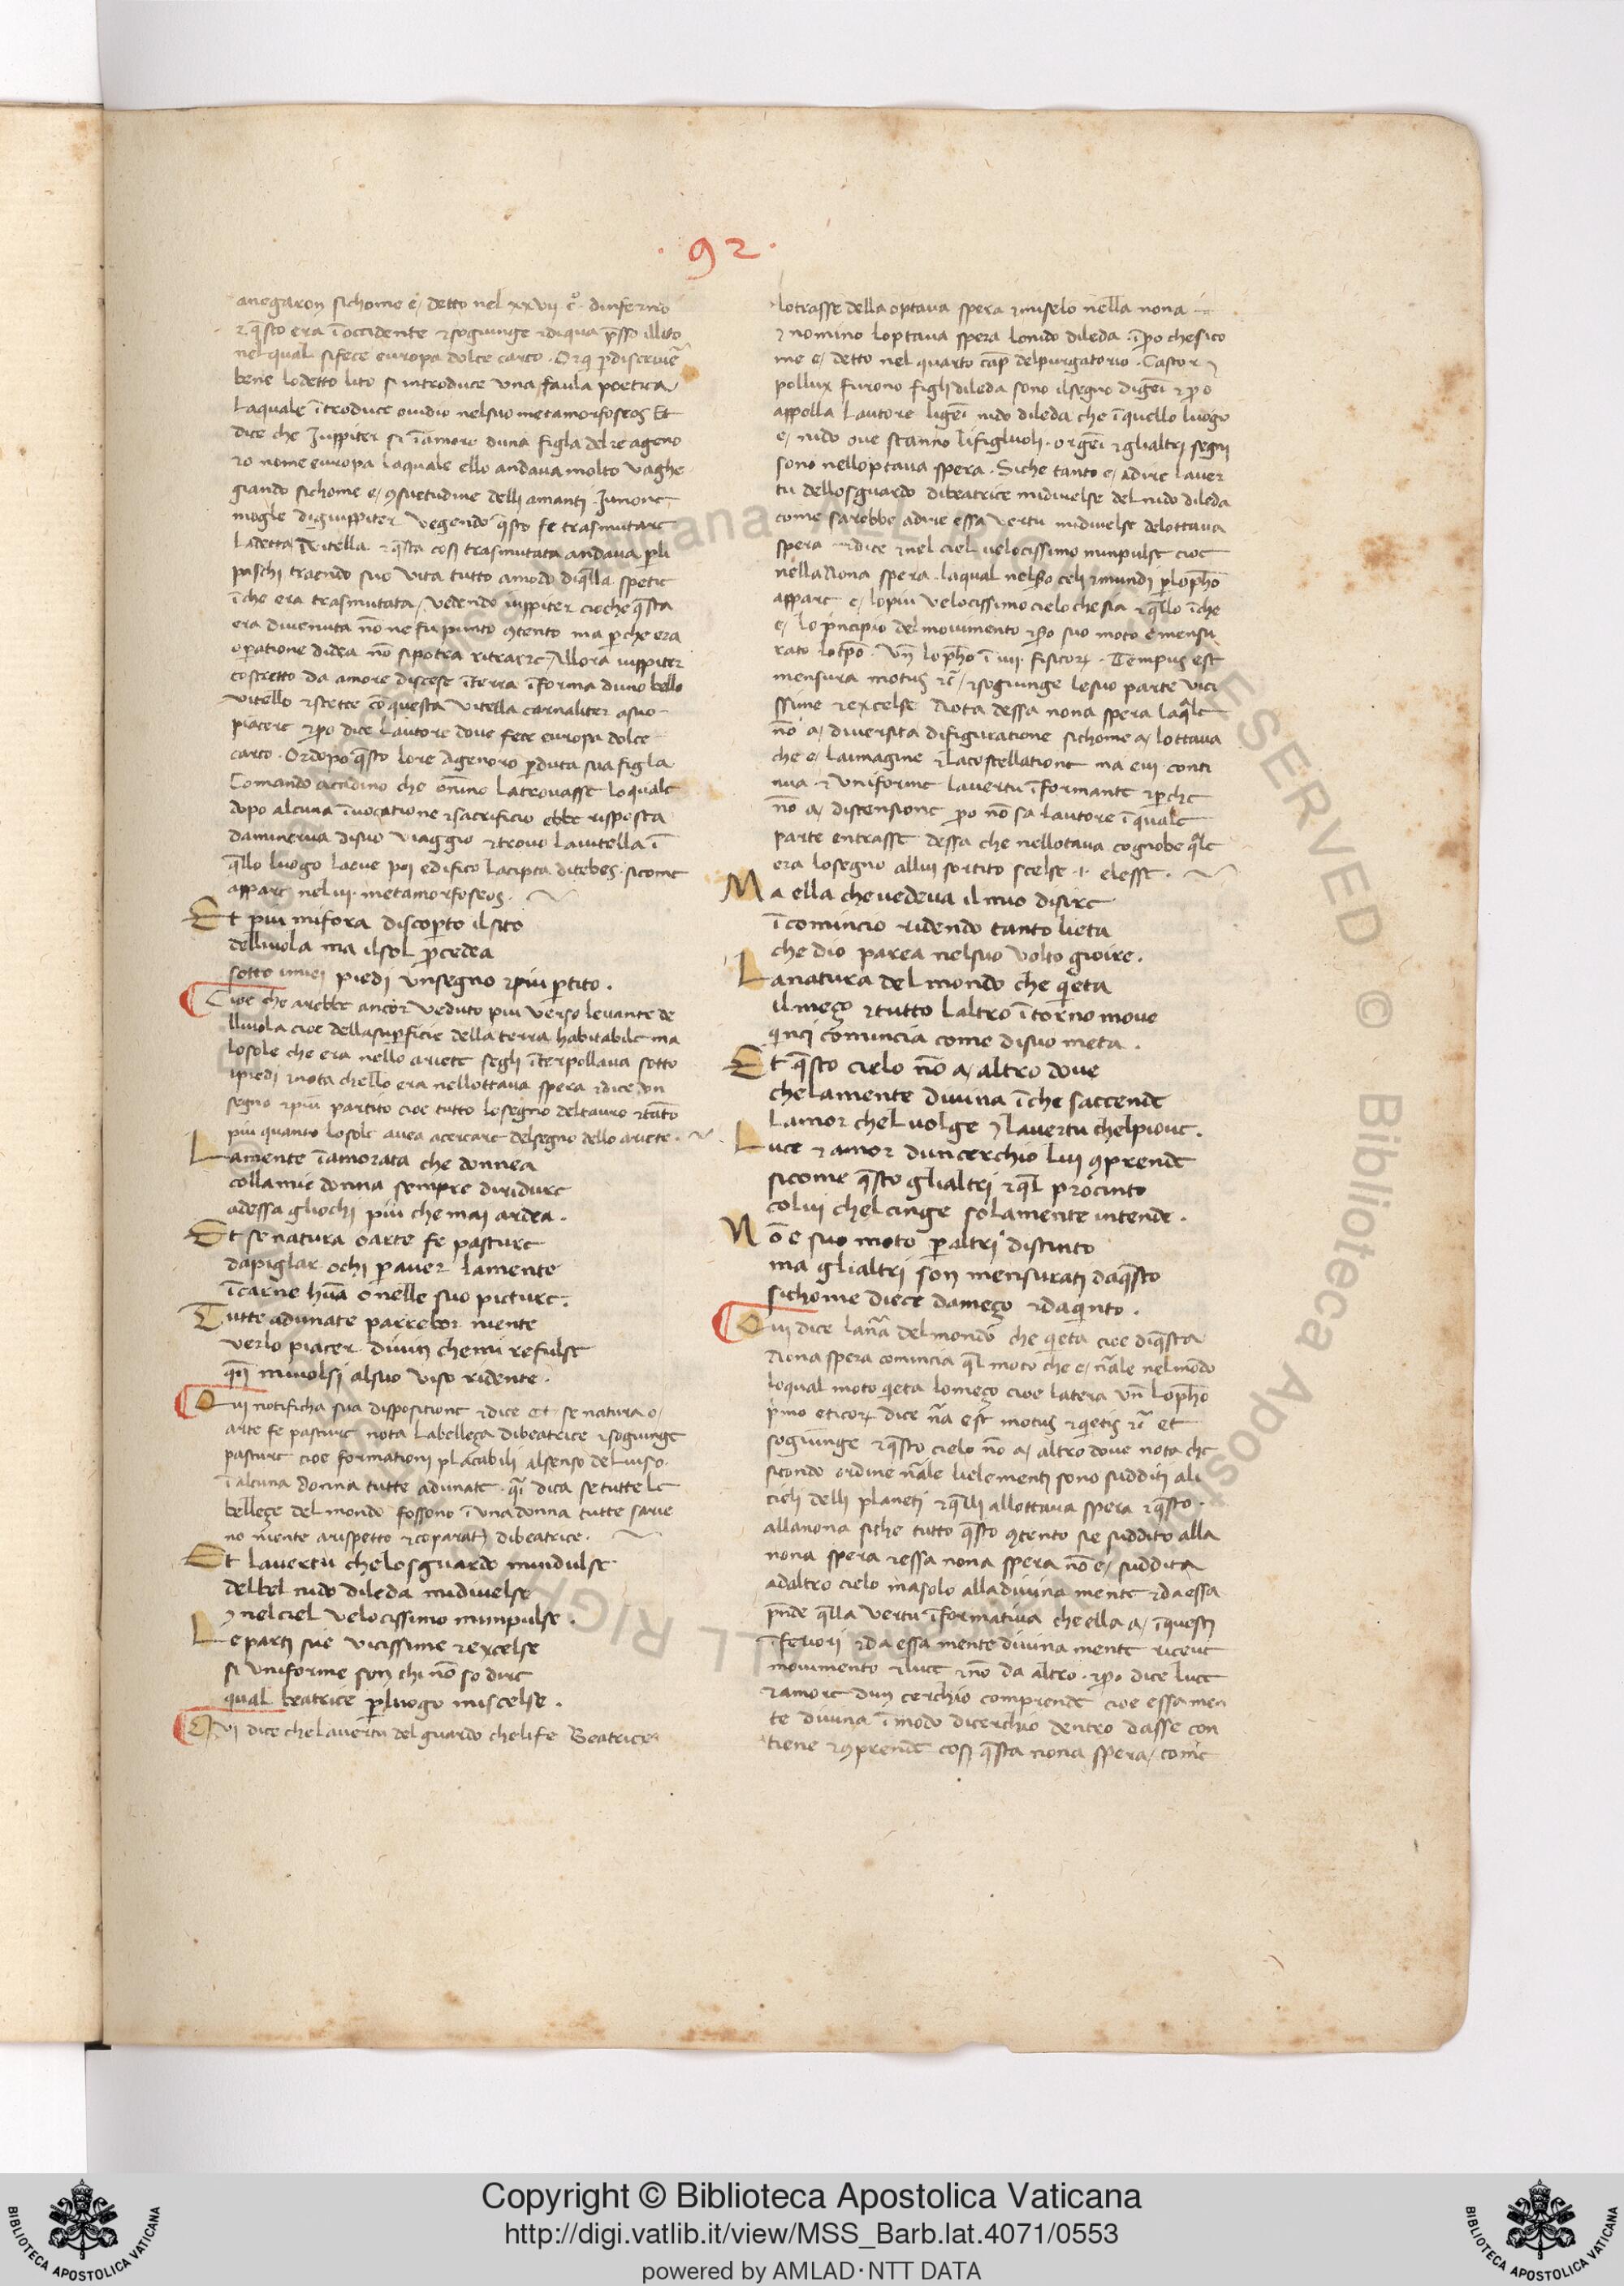 · 92 ·
anegaron sichome e / detto nel xxvii cº. dinferno
⁊ q̄sto era ī occidente ⁊ sogiunge ⁊ diqua p̄sso illito
nel qual sifece europa dolce carco . Or
bene lodetto lito si introduce una faula poetica
Laquale ītroduce ovidio nelsuo metamorfoseos Et
dice che Juppiter si īamoro duna figla del re ageno
ro nome europa laquale ello andava molto vaghe
giando sichome e / ꝯsuetudine delli amanti . Junone
mogle digiuppiter vegendo q̄sto fe trasmutare
Ladetta ī vitella ⁊ q̄sta cosi trasmutata andava p̱ li
paschi traendo suo vita tutto amodo diq̄lla spetie
ī che era trasmutata / Vedendo iuppiter cioche q̄sta
era divenuta nō ne fu punto ꝯtento ma p̱ che era
op̱atione didea nō sipotea ritrarre / Allora iuppiter
costretto da amore discese ī terra ī forma duno bello
vitello ⁊ stette cō questa vitella carnaliter asuo
piacere ⁊ p̱o dice Lautore dove fece europa dolce
carco . Ordopo q̄sto lore Agenoro p̱duta sua figla
Comando acadino che onīno Latrovasse loquale
dopo alcuna īvocatione ⁊ sacrificio ebbe risposta
daminerva disuo viaggio ⁊ trovo lavitella ī
q̄llo luogo laeve poi edifico lacipta ditebes . sicome
appare nel iii . metamorfoseos .
Et p̱iu mifora discop̱to il sito
dellivola ma ilsol p̱cedea
sotto imiei piedi unsegno ⁊ piu p̱tito .
Cioe che arebbe ancor veduto piu verso levante de
llivola cioe della sup̱ficie della terra habitabile ma
losole che era nello ariete segli īterpollava sotto
ipiedi ⁊ nota chello era nellottava spera ⁊ dice un
segno ⁊ piu partito cioe tutto losegno deltauro ⁊ tāto
piu quanto losole avea acercare delsegno dello ariete .
Lamente īamorata che donnea
colla mie donna sempre diridure
adessa gliochi piu che mai ardea .
Et se natura o arte fe pasture
dapiglar ochi p̱ aver lamente
ī carne huā o nelle suo picture .
Tutte adunate parrebor niente
verlo piacer divin chemi refulse
q̄n mivolsi alsuo viso ridente .
Qui notificha sua dispositione ⁊ dice et se natura o /
arte fe pasture nota Labelleça dibeatrice ⁊ sogiunge
pasture cioe formationi placabili alsenso del viso
ī alcuna donna tutte adunate . q̄i dica se tutte le
belleçe del mondo fossono ī una donna tutte sarie
no niente arispetto ⁊ coparatī dibeatrice .
Et lavertu chelosguardo mindulse
delbel nido dileda midivelse
⁊ nel ciel velocissimo mimpulse .
Le parti sue vicissime ⁊ excelse
si uniforme son chi nō so dire
qual beatrice p̱ luogo miscelse .
Qui dice chelavertu del guardo chelife Beatrice
lotrasse della optava spera ⁊ miselo nella nona
⁊ nomino loptava spera lonido dileda . īp̱o chesico
me e / detto nel quarto cap̄ delpurgatorio . Castor ⁊
pollux furono figli dileda sono ilsegno digēi ⁊ p̱o
appella Lautore ligēi nido dileda che ī quello luogo
e / nido ove stanno lifigliuoli . or gēi ⁊ glialtri segni
sono nelloptava spera . Siche tanto e / adire laver
tu dellosguardo dibeatrice midivelse del nido dileda
come sarebbe adire essa vertu midivelse delottava
spera ⁊ dice ⁊ nel ciel velocissimo mimpulse cioe
nella Nona spera . laqual celi ⁊ mundi p̱ lop̄ho
appare e / lopiu velocissimo cielo chesia ⁊ q̄llo ī che
e / lo p̱ncipio del movimento ⁊ p̱o suo moto e mensu
rato lotp̄o . Vn̄ lop̄ho ī iiii . fisicoꝝ . Tempus est
mensura motus ⁊c̄ / ⁊ sogiunge lesuo parte vici
ssime ⁊ excelse Nota dessa nona spera laq̄le
nō a / diversita difiguratione sichome a / lottava
che e / laimagine ⁊ lacostellatione ma evi conti
nua ⁊ uniforme lavertu īformante ⁊ p̱che
nō a / distensione p̱o nō sa lautore ī quale
parte entrasse dessa che nellotava cognobe q̄le
era losegno allui sortito scelse .i. elesse .
Ma ella chevedeva il mio disire
īcomincio ridendo tanto lieta
che dio parea nelsuo volto gioire .
Lanatura del mondo che q̄eta
il meço ⁊ tutto laltro ītorno move
q̄nci comincia come disuo meta .
Et q̄sto cielo nō a / altro dove
chelamente divina ī che saccende
Lamor chel volge ⁊ lavertu chelpiove .
Luce ⁊ amor duncerchio lui ꝯprende
sicome q̄sto glialtri ⁊ q̄l procinto
colui chelcinge solamente intende .
Nō e suo moto p̱ altri distinto
ma glialtri son mensurati daq̄sto
sichome diece dameço ⁊ daq̄nto .
Qui dice lanā̄ del mondo che q̄eta cioe diq̄sta
Nona spera comincia q̄l moto che e / nāle nelmōdo
loqual moto q̄eta lomeço cioe latera vn̄ Lop̄ho
p̱mo eticoꝝ dice nā est motus ⁊ q̄etis ⁊c̄ et
sogiunge ⁊ q̄sto cielo nō a / altro dove nota che
sicondo ordine nāle lielementi sono sudditi ali
cieli delli planeti ⁊ q̄lli allottava spera ⁊ q̄sto
allanona siche tutto q̄sto ꝯtento sie suddito alla
nona spera ⁊ essa nona spera nō e / suddita
adaltro cielo masolo alladivina mente ⁊ da essa
p̱nde q̄lla vertu īformativa che ella a / ī questi
īferiori ⁊ da essa mente divina mente riceve
movimento ⁊ luce ⁊ nō da altro . ⁊ p̱o dice luce
⁊ amore dun cerchio comprende cioe essa men
te divina ī modo dicerchio dentro dasse con
tiene ⁊ ꝯprende cosi q̄sta nona spera / come
Copyright © Biblioteca Apostolica Vaticana
http://digi.vatlib.it/view/MSS_Barb.lat.4071/0553
powered by AMLAD·NTT DATA
BIBLIOTECA APOSTOLICA VATICANA
BIBLIOTECA APOSTOLICA VATICANA